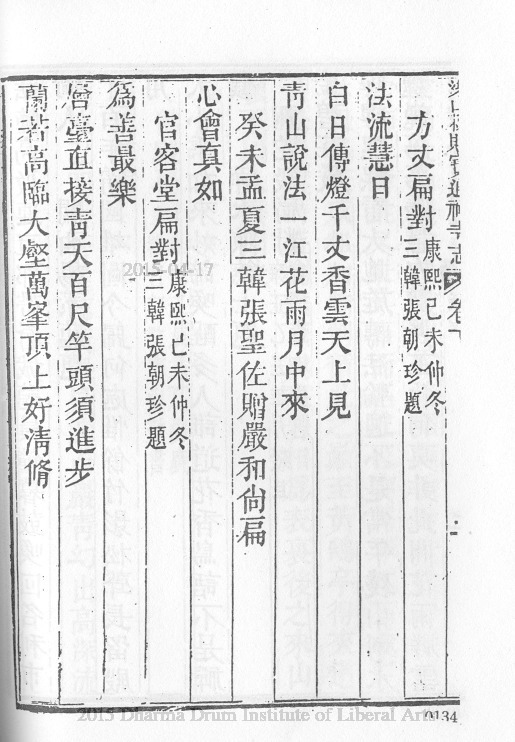 寶通禪寺志 卷下
方丈扁對 康熙己未仲冬 三韓張朝珍題
法流慧日
白日傳燈千丈香雲天上見
青山說法一江花雨月中來
癸未孟夏三韓張聖佐贈嚴和尙扁
心會真如
官客堂扁對 康熙己未仲冬 三韓張朝珍題
為善最樂
層臺直接青天百尺竿頭須進步
蘭若高臨大壑萬峯頂上好清脩
2015-04-17
2015 Dharma Drum Institute of Liberal Arts
0134